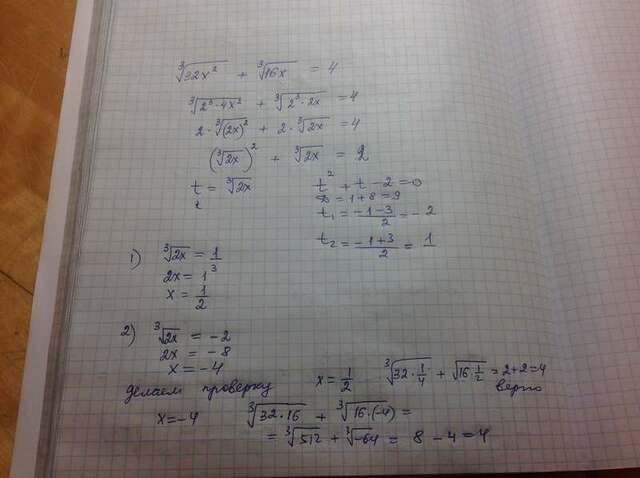 ∛(32x²) + ∛(16x) = 4
∛(2³·4x²) + ∛(2³·2x) = 4
2·∛(2x)² + 2·∛(2x) = 4
(∛(2x))² + ∛(2x) = 2
t = ∛(2x) t² + t - 2 = 0
t D = 1 + 8 = 9
t₁ = (-1-3)/2 = -2
t₂ = (-1+3)/2 = 1
1) ∛(2x) = 1
2x = 1³
x = 1/2
2) ∛(2x) = -2
2x = -8
x = -4
делаем проверку x = 1/2 ∛(32·1/4) + √(16·1/2) = 2+2=4
верно
x = -4 ∛(32·16) + ∛(16·(-4)) =
= ∛512 + ∛-64 = 8 - 4 = 4